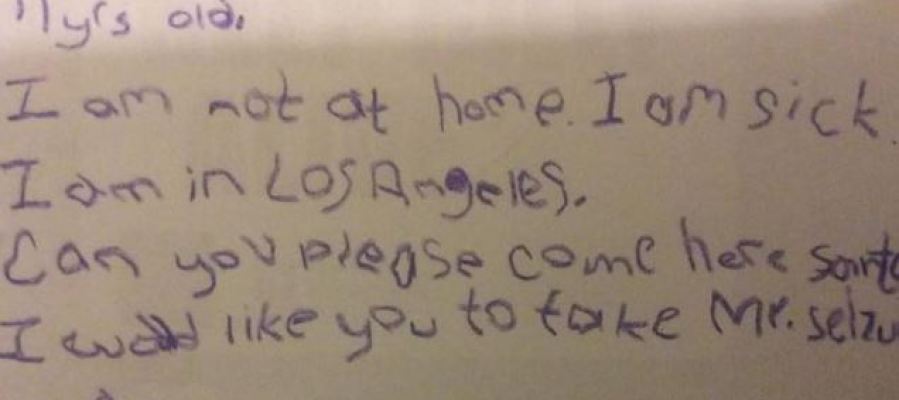 11 yrs old.
I am not at home. I am sick.
I am in Los Angeles.
Can you please come here
I would like you to take Mr.